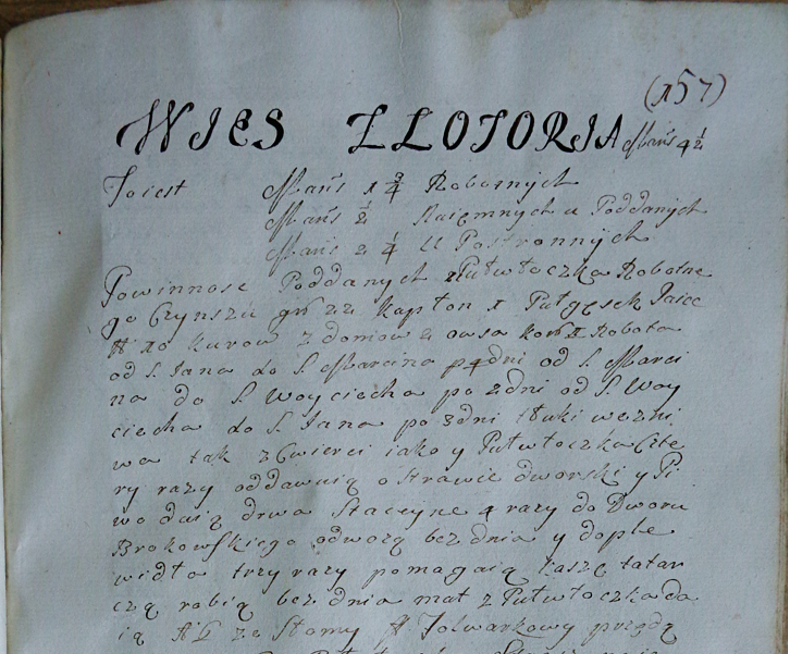 (157)
WIES ZŁOTORIA Mans 4 1/2
To iest Mans 1 3/4 Robotnych
Mans 1/2 Naięmnych u Poddanych
Mans 2 1/4 U Postronnych
Powinnose Poddanych z Putwłoczka Robotne
go Czynszu gr 22 Kapłon 1 Putgęsek Jaiec
10 kurow z domow 2 owsa Robota
od S. Jana do S. Marcina p 4 dni od S. Marci
na do S. Woyciecha po 2 dni od S. Woy
ciecha do S. Jana po 3 dni tłuki we zni
wa tak z Cwierci iako y Putwłoczka Czte
ry razy oddawaią o strawie dworski y Pi
wo daią drwa Stacyjne 4 razy do Dworu
Brokowskiego odwozą bez dnia y do płe
widła trzy razy pomagaią kaszę tatar
czą robią bez dnia mat z Putwłoczka da
ią ze Słomy Folwarkowy przędą